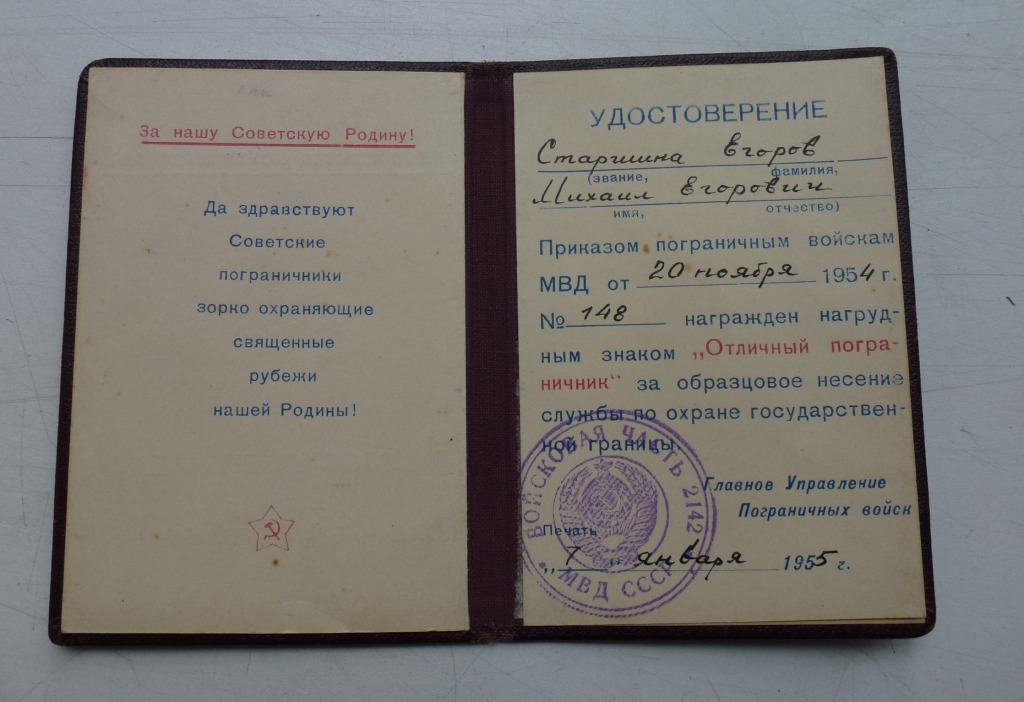 За нашу Советскую Родину!
Да здравствуют
Советские
пограничники
зорко охраняющие
священные
рубежи
нашей Родины!
УДОСТОВЕРЕНИЕ
Старшина Егоров
(звание, фамилия,
Михаил Егорович
имя, отчество)
Приказом пограничным войскам
МВД от 20 ноября 1954 г.
№ 148 награжден нагруд-
ным знаком „Отличный погра-
ничник" за образцовое несение
службы по охране государствен-
ной границы.
Главное Управление
Пограничных войск
Печать
„7" января 1955 г.
ВОЙСКОВАЯ ЧАСТЬ 2142
МВД СССР